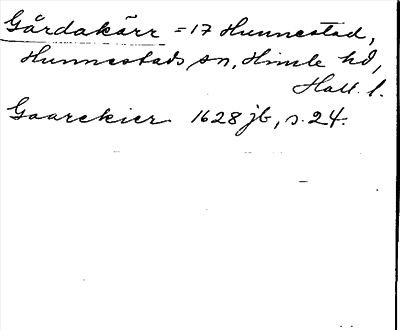 Gårdakärr = 17 Hunnestad,
Hunnestads sn, Himle hd,
Hall. l.
Gaarekier 1628 jb, s. 24.